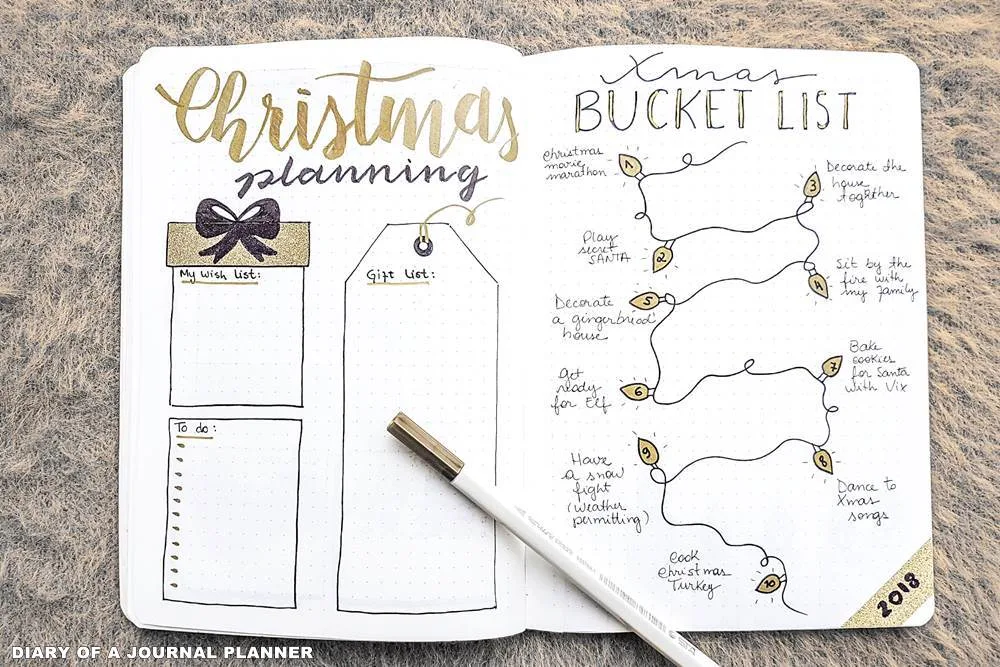 Christmas
planning
My Wish List:
Gift List:
To do:
Xmas
BUCKET LIST
1
Christmas
movie
marathon
2
Play
secret
SANTA
3
Decorate the
house
together
4
Sit by the
fire with
my family
5
Decorate
a gingerbread
house
6
Get
ready
for Elf
7
Bake
cookies
for Santa
with Vix
8
Dance to
Xmas
songs
9
Have
a snow
fight
(weather
permitting)
10
Cook
Christmas
Turkey
2018
DIARY OF A JOURNAL PLANNER